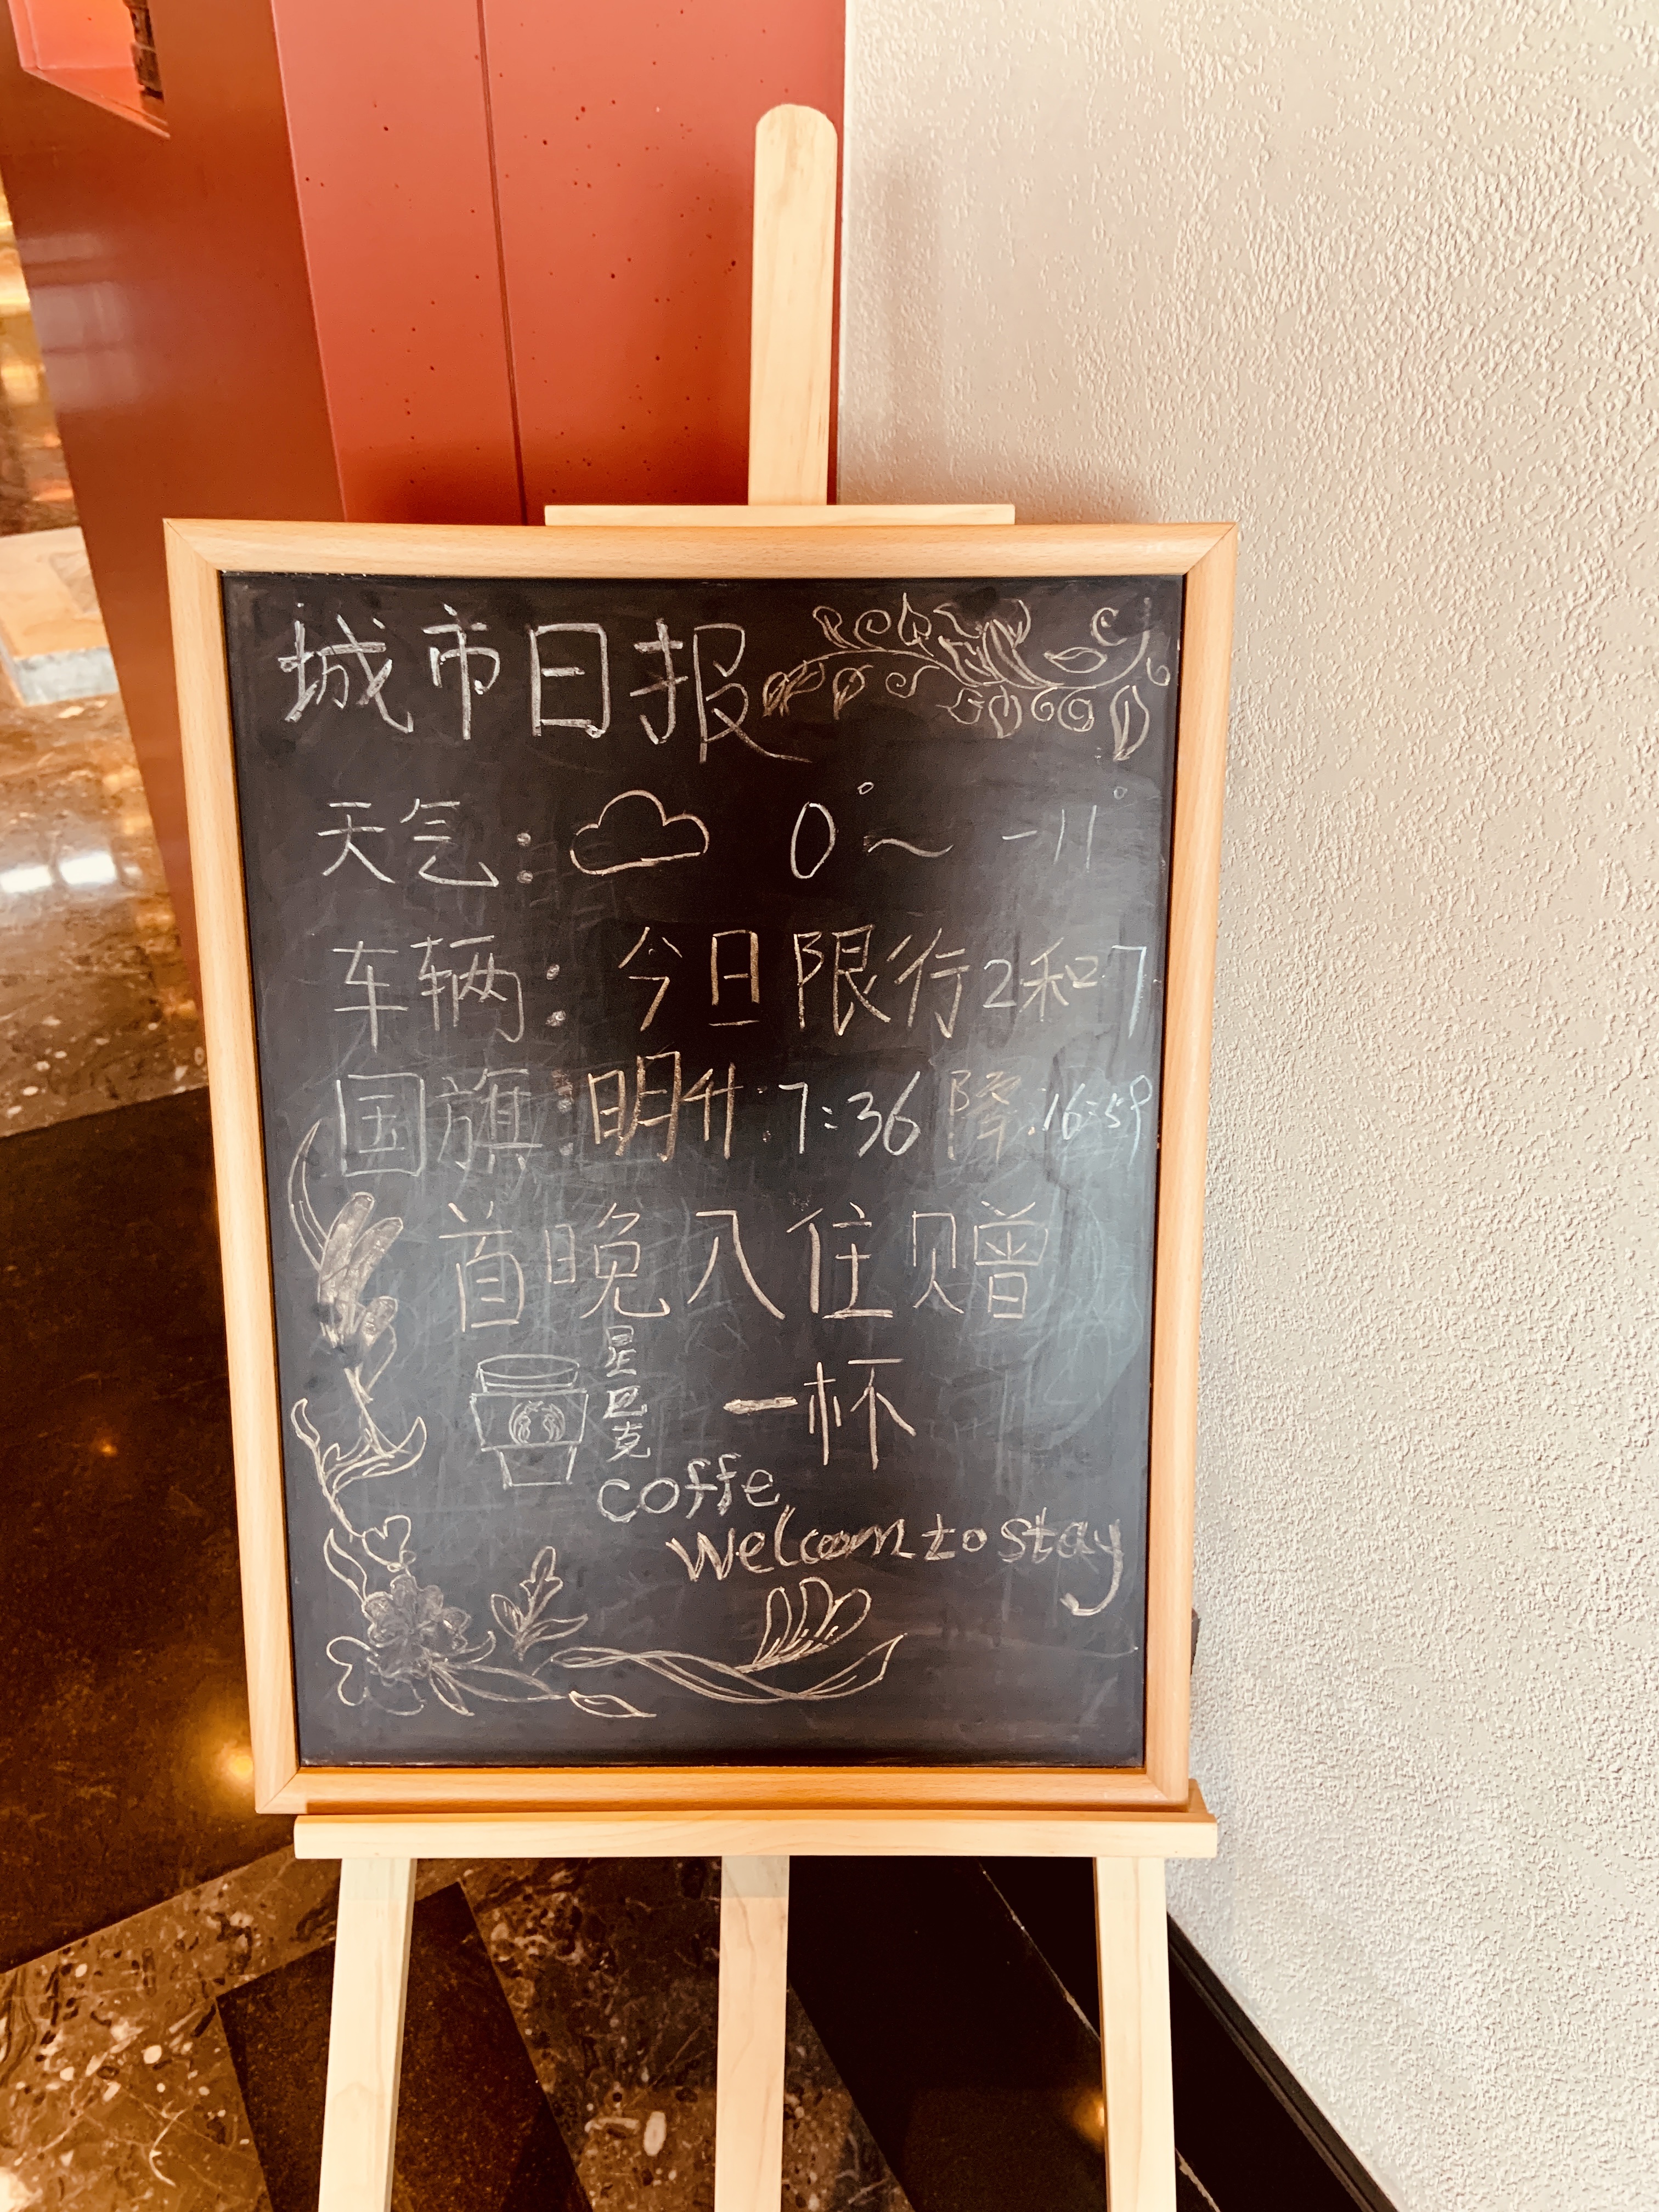 城市日报
天气: 0°~ -11°
车辆: 今日限行2和7
国旗:明升:7:36 降:16:59
首晚入住赠
星巴克 一杯
coffe
Welcom to stay